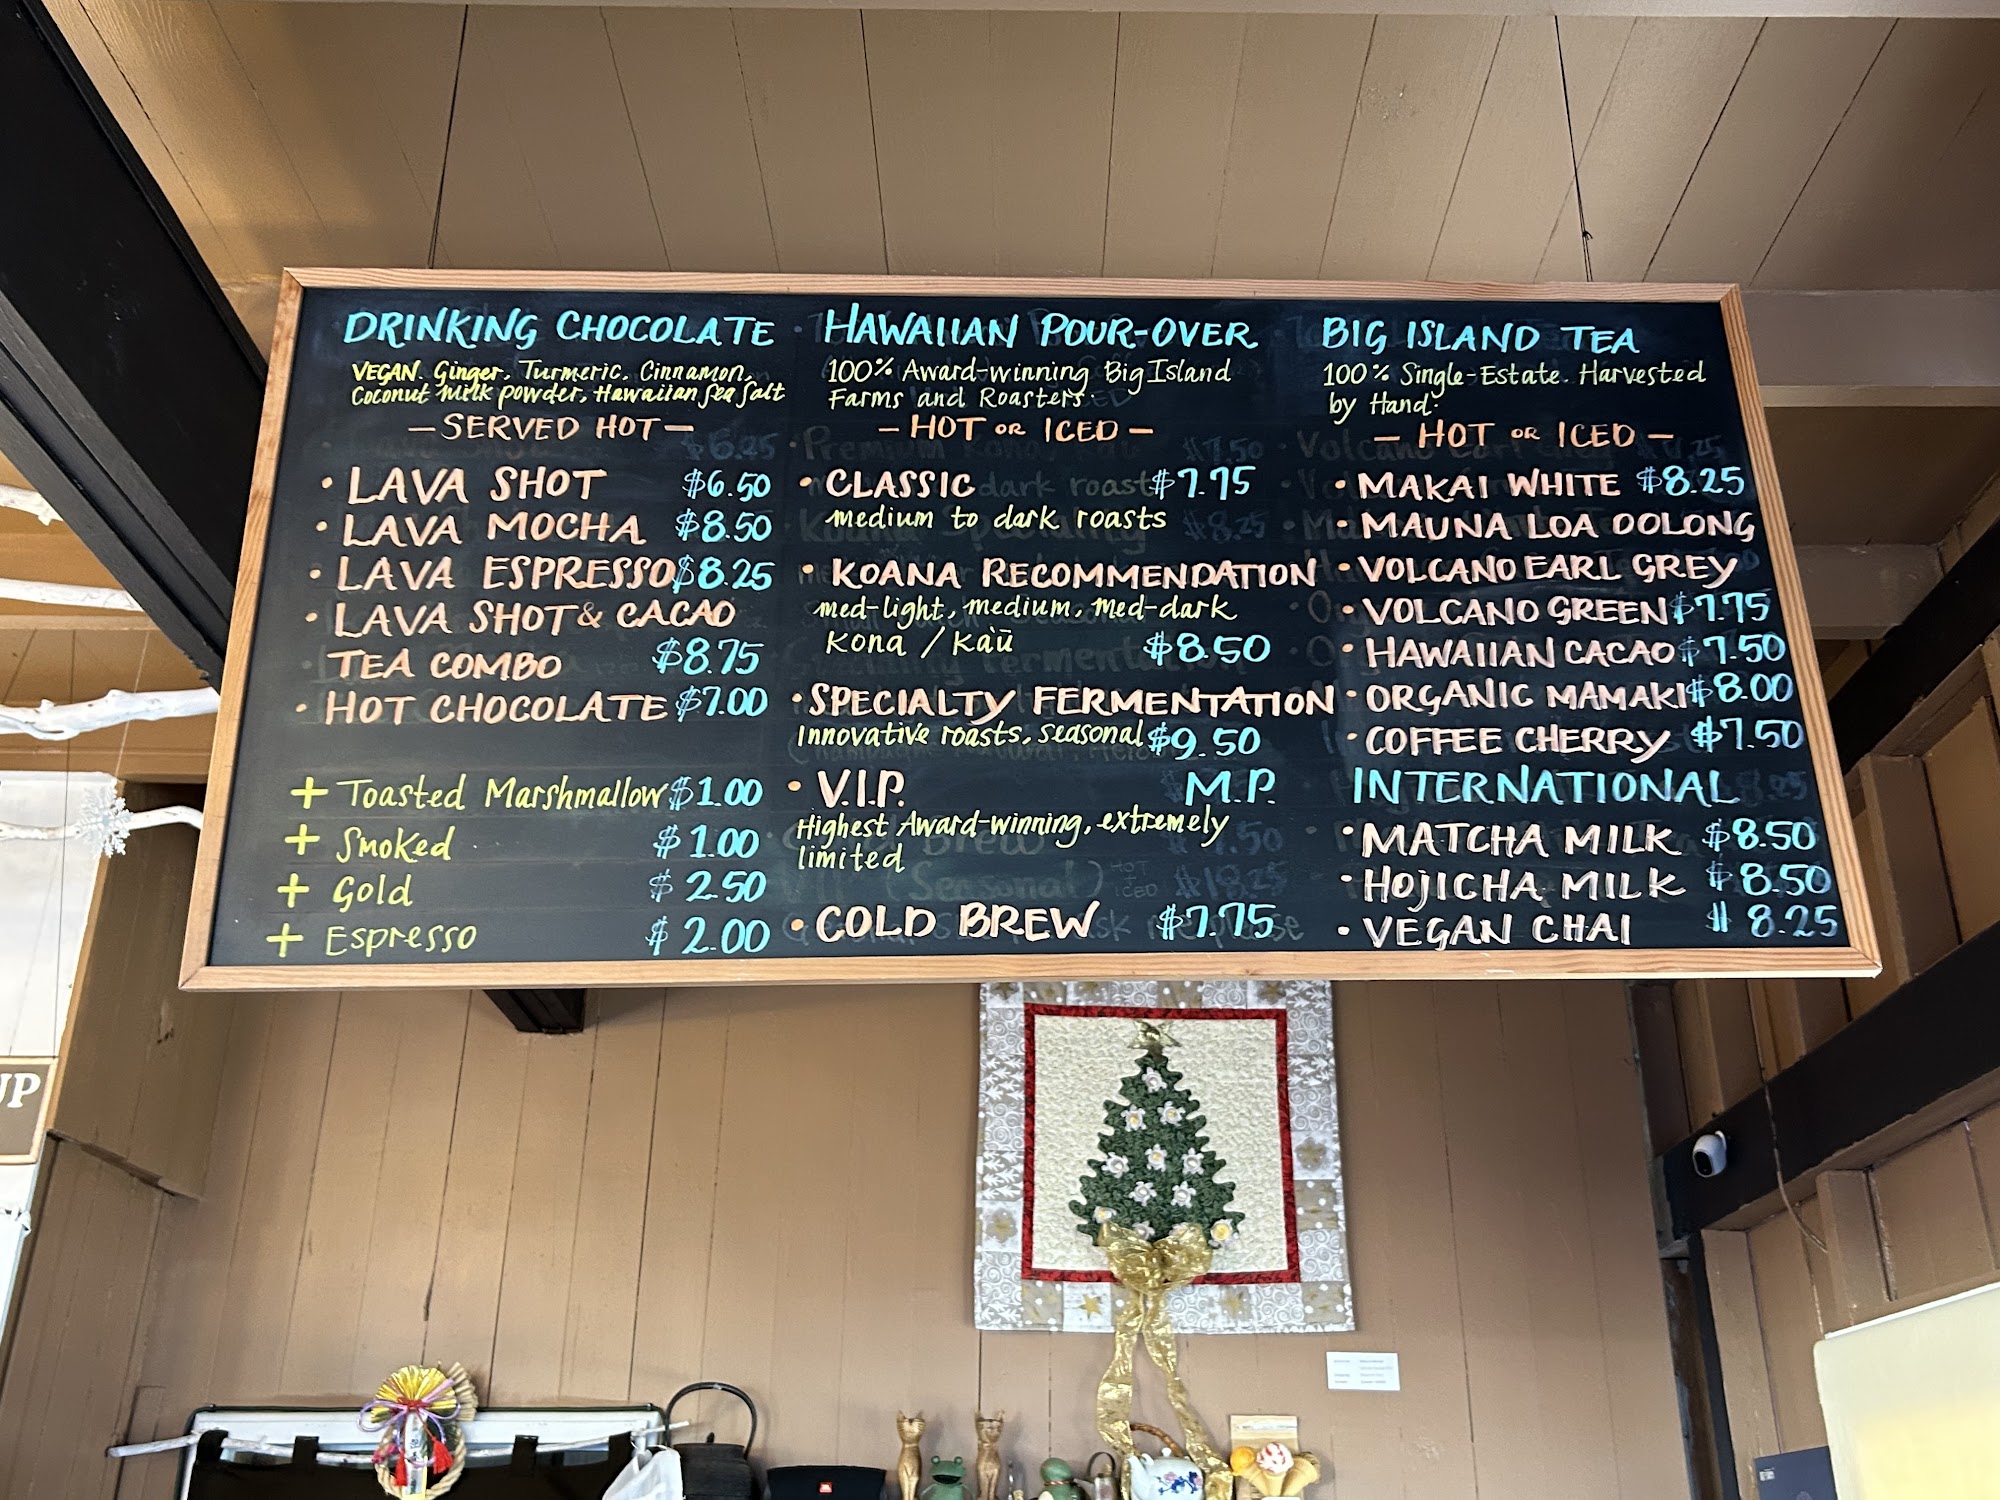 DRINKING CHOCOLATE
VEGAN. Ginger, Turmeric, Cinnamon,
Coconut milk powder, Hawaiian Sea Salt
— SERVED HOT —
• LAVA SHOT $6.50
• LAVA MOCHA $8.50
• LAVA ESPRESSO $8.25
• LAVA SHOT & CACAO
TEA COMBO $8.75
• HOT CHOCOLATE $7.00
+ Toasted Marshmallow $1.00
+ Smoked $1.00
+ Gold $2.50
+ Espresso $2.00
HAWAIIAN POUR-OVER
100% Award-winning Big Island
Farms and Roasters.
— HOT OR ICED —
• CLASSIC $7.75
medium to dark roasts
• KOANA RECOMMENDATION
med-light, medium, med-dark
Kona / Kàū $8.50
• SPECIALTY FERMENTATION
Innovative roasts, seasonal $9.50
• V.I.P. M.P.
Highest Award-winning, extremely
limited
• COLD BREW $7.75
BIG ISLAND TEA
100% Single-Estate. Harvested
by Hand.
— HOT OR ICED —
• MAKAI WHITE $8.25
• MAUNA LOA OOLONG
• VOLCANO EARL GREY
• VOLCANO GREEN $7.75
• HAWAIIAN CACAO $7.50
• ORGANIC MAMAKI $8.00
• COFFEE CHERRY $7.50
INTERNATIONAL
• MATCHA MILK $8.50
• HOJICHA MILK $8.50
• VEGAN CHAI $8.25
UP
JBL